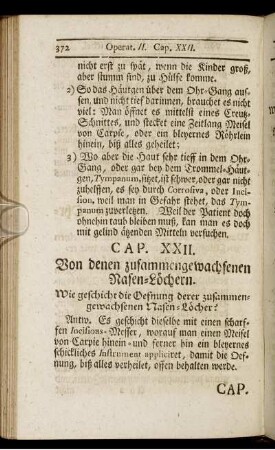 372 Operat. II. Cap. XXII.
nicht erst zu spät, wenn die Kinder groß,
aber stumm sind, zu Hülfe komme.
2) So das Häutgen über dem Ohr-Gang aussen,
und nicht tief darinnen, brauchet es nicht
viel: Man öffnet es mittelst eines Creutz-
Schnittes, und stecket eine Zeitlang Meisel
von Carpie, oder ein bleyernes Röhrlein
hinein, biß alles geheilet;
3) Wo aber die Haut sehr tieff in dem Ohr-
Gang, oder gar bey dem Trommel-Häut-
gen, Tympanum, sitzet, ist schwer, oder gar nicht
zuhelffen, es sey durch Corrosiva, oder Inci-
sion, weil man in Gefahr stehet, das Tym-
panum zuverletzen. Weil der Patient doch
ohnehin taub bleiben muß, kan man es doch
mit gelind ätzenden Mitteln versuchen.
CAP. XXII.
Von denen zusammengewachsenen
Nasen-Löchern.
Wie geschicht die Oefnung derer zusammen-
gewachsenen Nasen-Löcher?
Antw. Es geschicht dieselbe mit einen scharf-
fen Incisions-Messer, worauf man einen Meisel
von Carpie hinein- und ferner hin ein bleyernes
schickliches Instrument appliciret, damit die Oef-
nung, biß alles verheilet, offen behalten werde.
CAP.